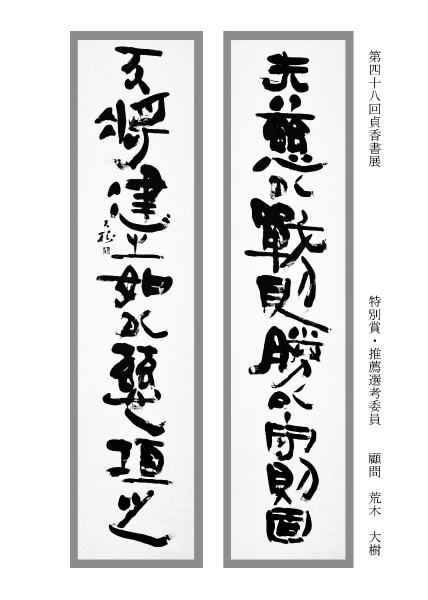 第四十八回貞香書展　特別賞・推薦選考委員　顧問　荒木　大樹
夫慈以戰則勝以守則固
天將建之如以慈垣之
大樹